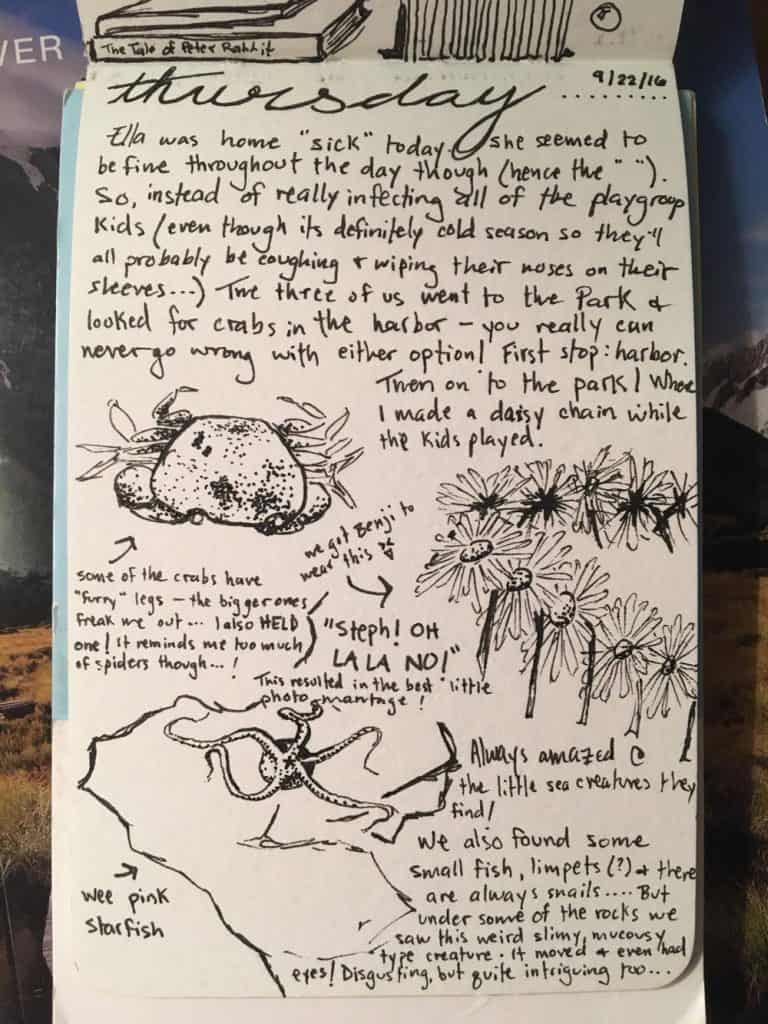 VER
The Tale of Peter Rabbit
thursday
9/22/16
Ella was home "sick" today. she seemed to
be fine throughout the day though (hence the " ").
So, instead of really infecting all of the playgroup
Kids (even though its definitely cold season so they'll
all probably be coughing & wiping their noses on their
sleeves...) The three of us went to the Park &
looked for crabs in the harbor - you really can
never go wrong with either option! First stop: harbor.
Then on to the park! Where
I made a daisy chain while
the Kids played.
some of the crabs have
"furry" legs - the bigger ones
freak me out... I also HELD
one! It reminds me too much
of spiders though...!
we got Benji to
wear this
"Steph! OH
LA LA NO!"
This resulted in the best little
photo-mantage!
Always amazed @
the little sea creatures they
find!
wee pink
starfish
We also found some
small fish, limpets (?) & there
are always snails.... But
under some of the rocks we
saw this weird slimy, mucousy
type creature. It moved & even had
eyes! Disgusting, but quite intriguing too...